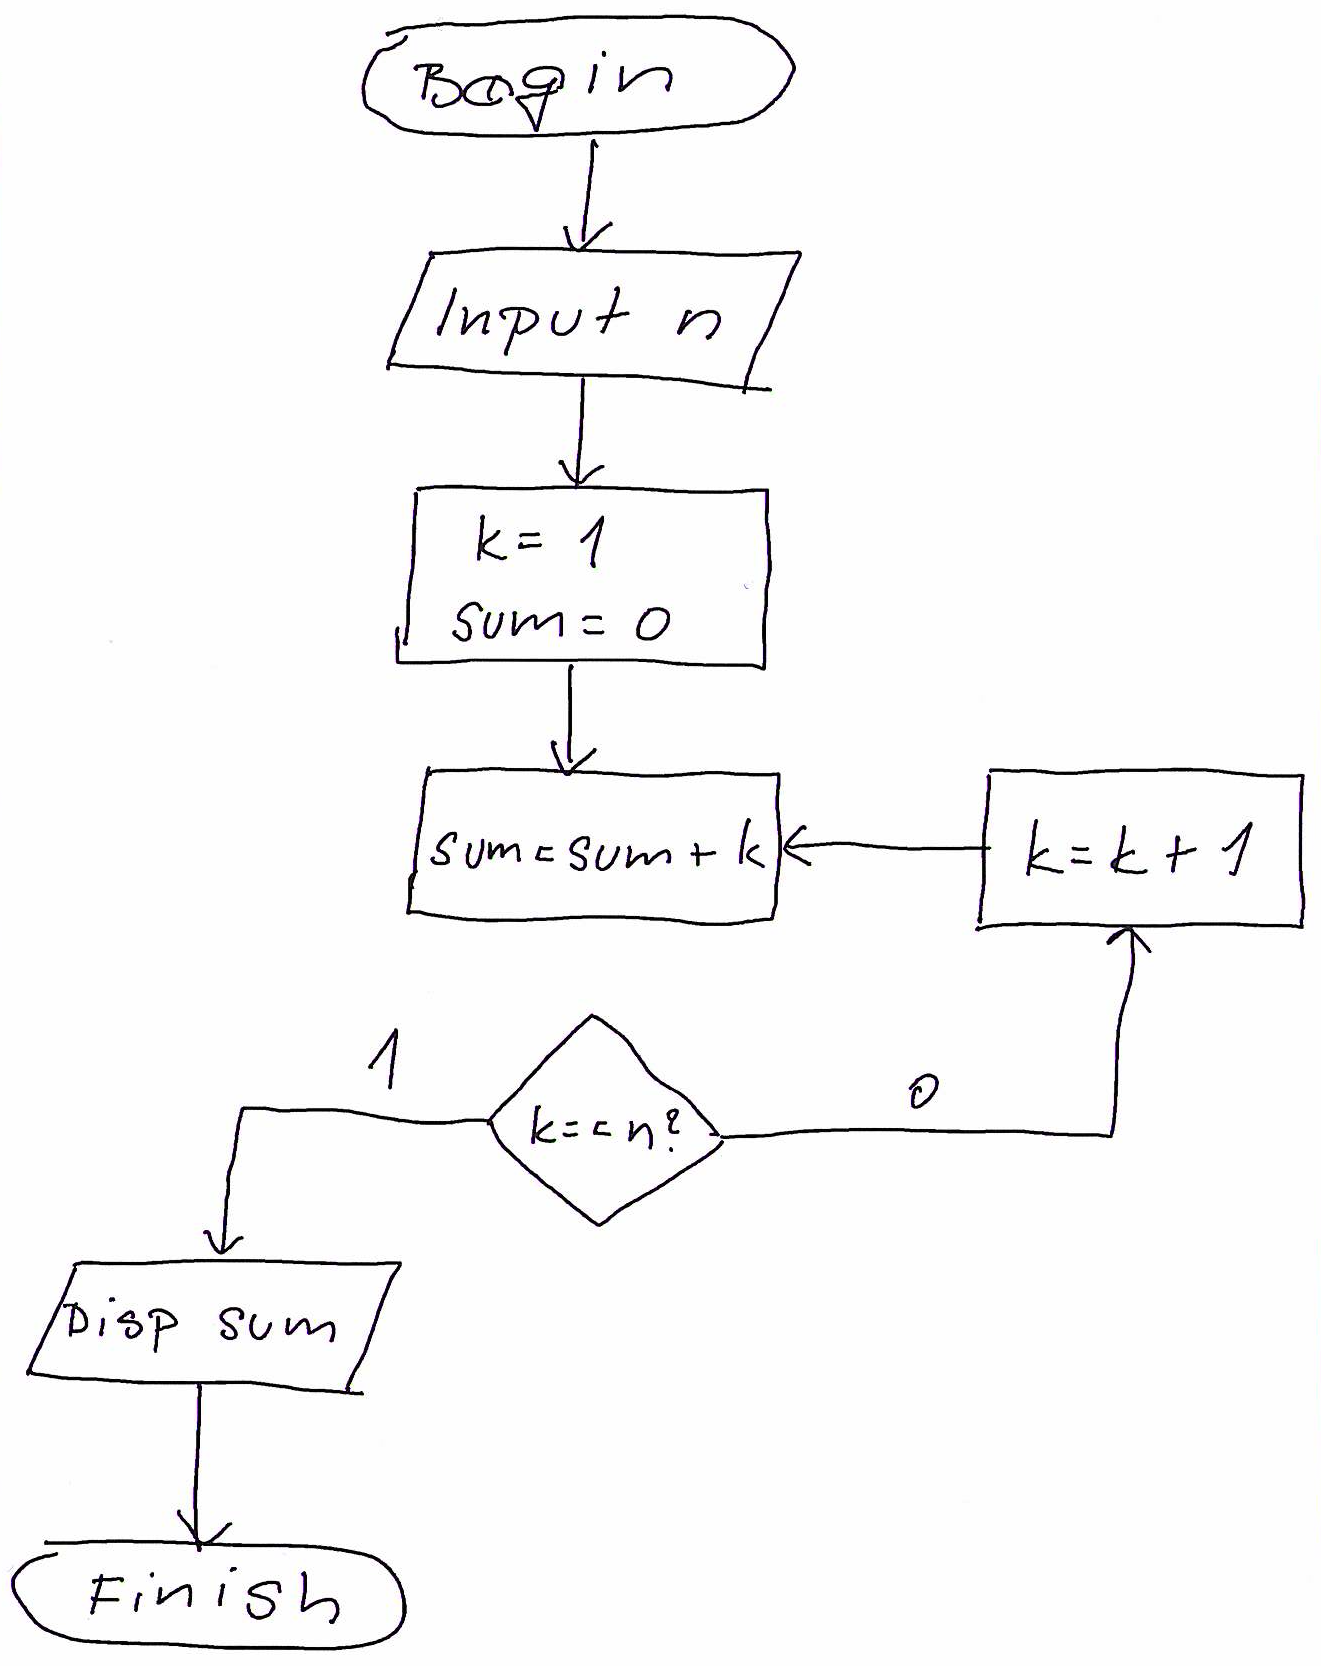 Begin
Input n
k = 1
sum = 0
sum = sum + k
k = k + 1
1
k == n?
0
Disp sum
Finish